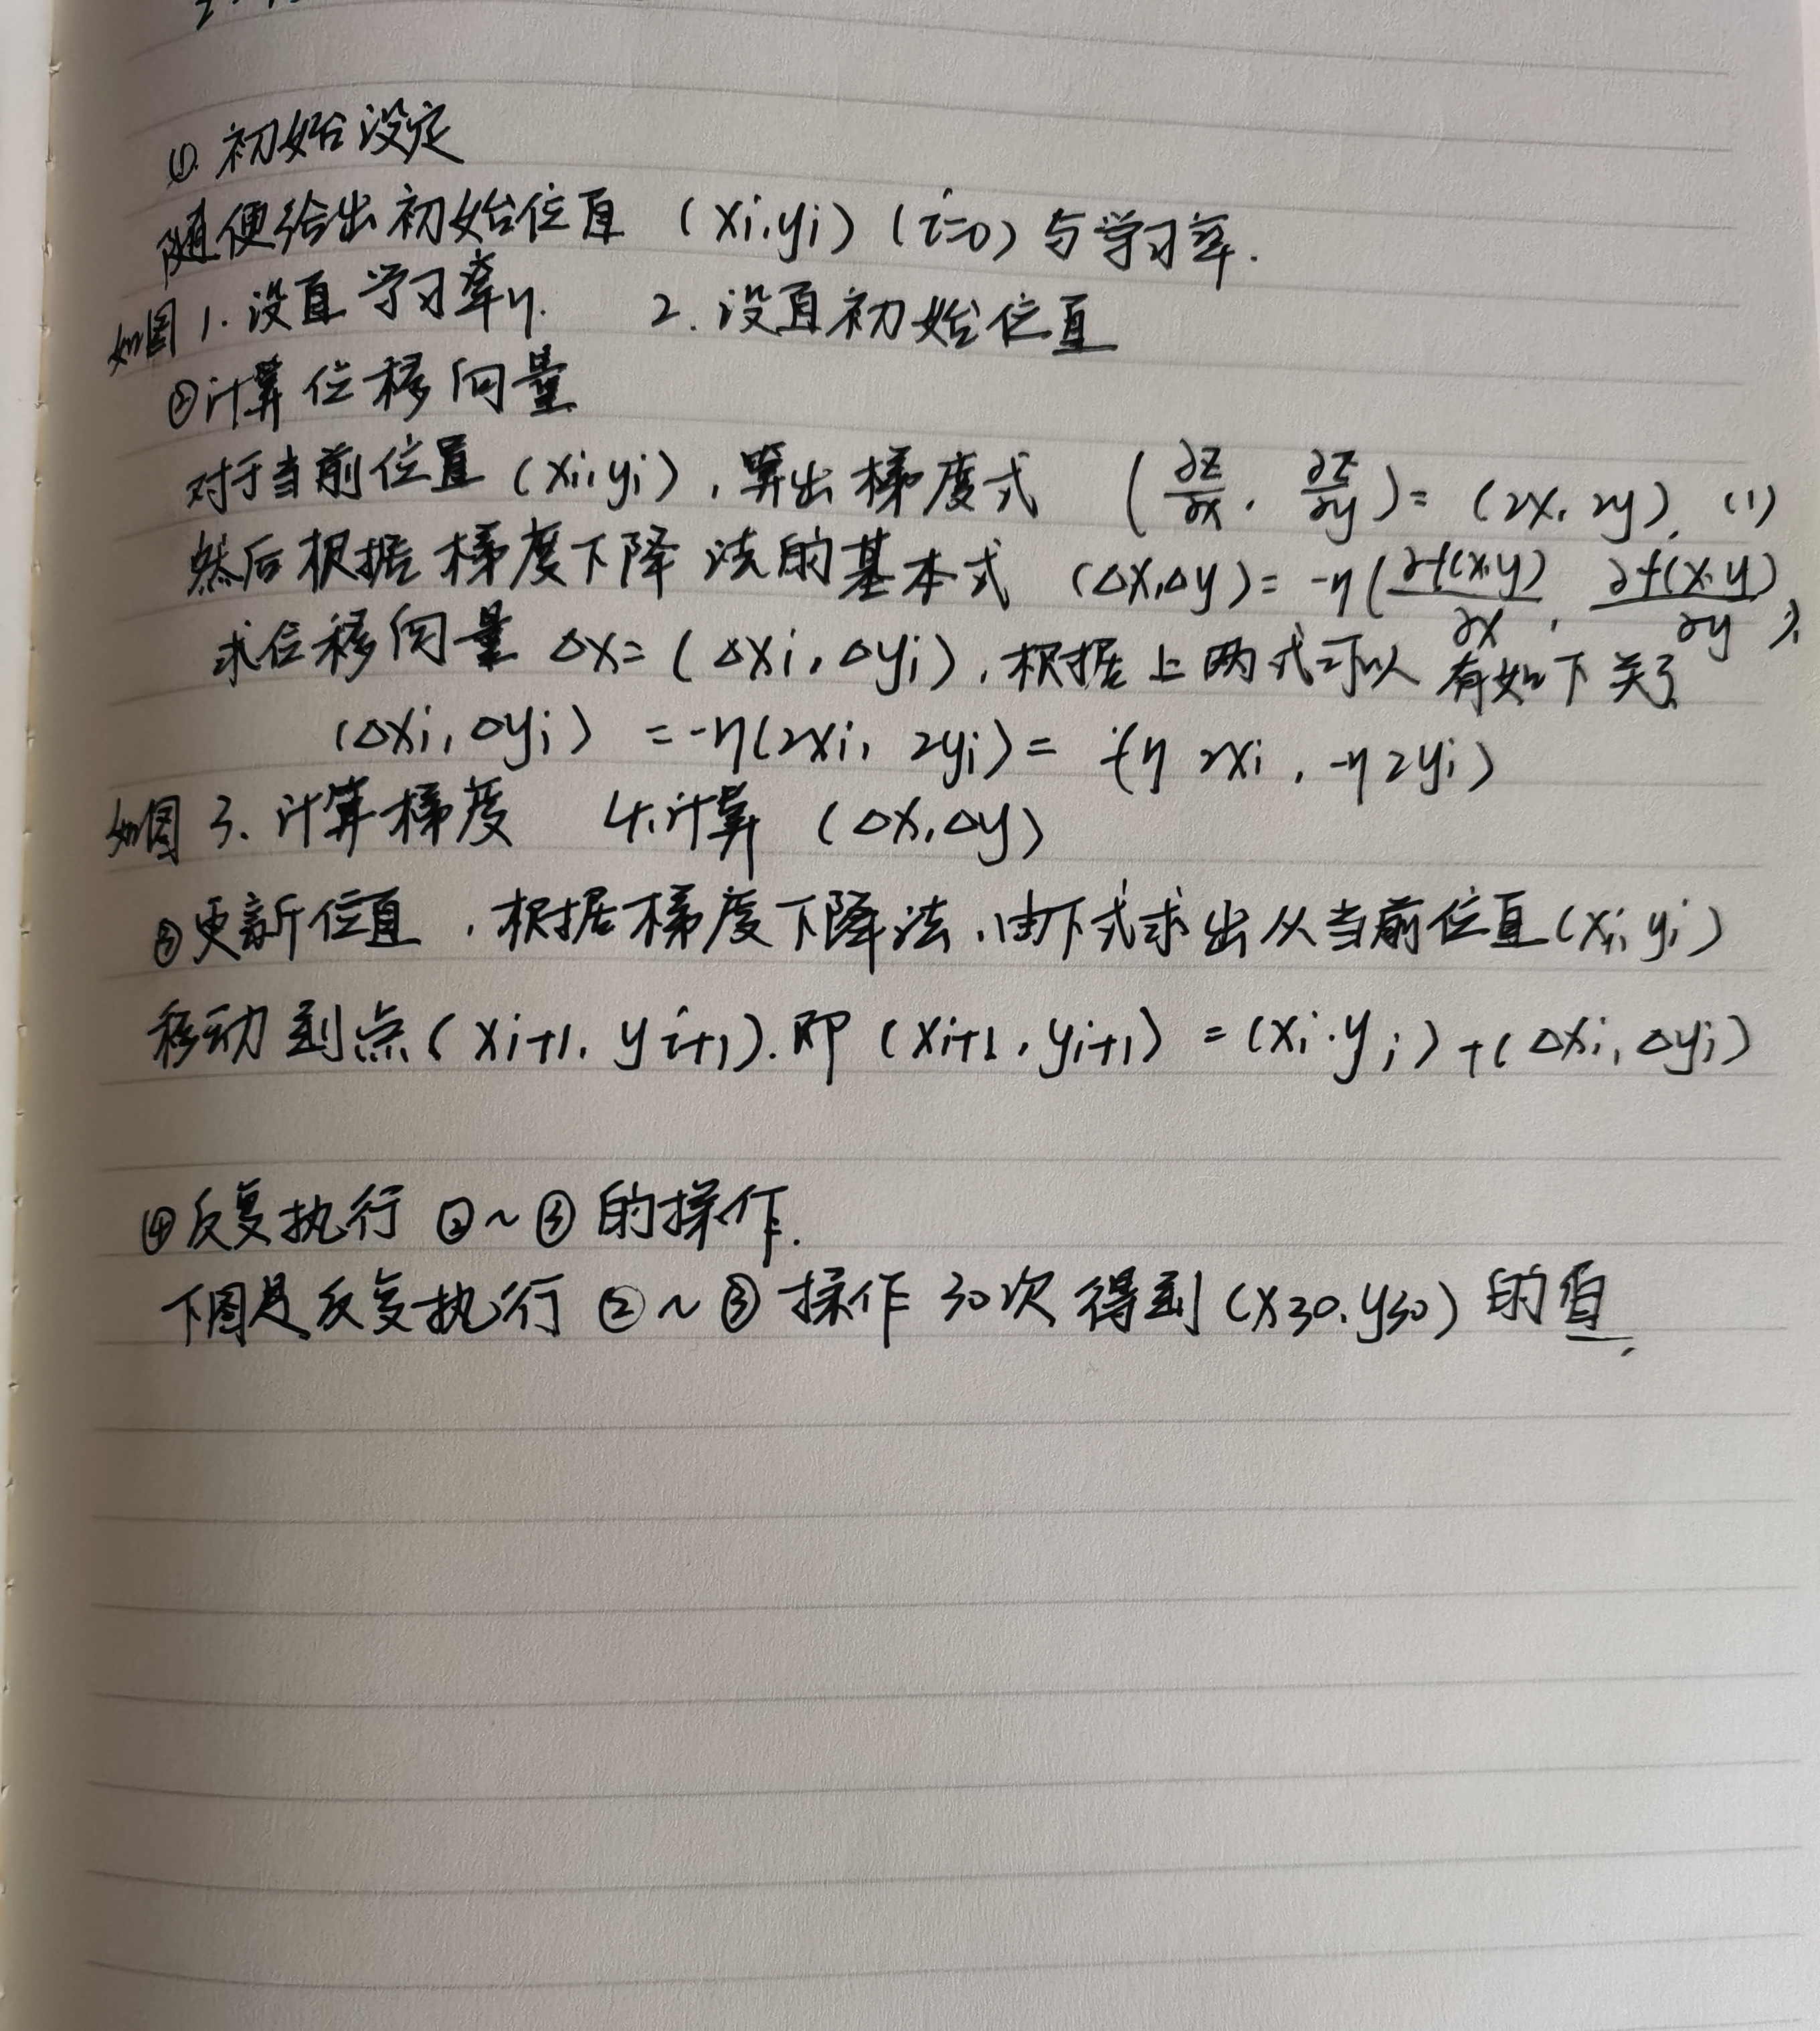 ① 初始设定
随便给出初始位置 (xi,yi) (i=0) 与学习率.
如图 1. 设置学习率η. 2. 设置初始位置
②计算位移向量
对于当前位置 (xi,yi), 算出梯度式 (∂z/∂x, ∂z/∂y) = (2x, 2y). (1)
然后根据梯度下降法的基本式 (Δx,Δy) = -η(∂f(x,y)/∂x, ∂f(x,y)/∂y),
求位移向量 Δx = (Δxi, Δyi), 根据上两式可以有如下关系
(Δxi, Δyi) = -η(2xi, 2yi) = (-η 2xi, -η 2yi)
如图 3. 计算梯度 4. 计算 (Δx,Δy)
③更新位置, 根据梯度下降法, 由下式求出从当前位置(xi, yi)
移动到点(xi+1, yi+1). 即 (xi+1, yi+1) = (xi, yi) + (Δxi, Δyi)
④反复执行 ②~③ 的操作.
下图是反复执行 ②~③ 操作 30次 得到 (x30, y30) 的值.